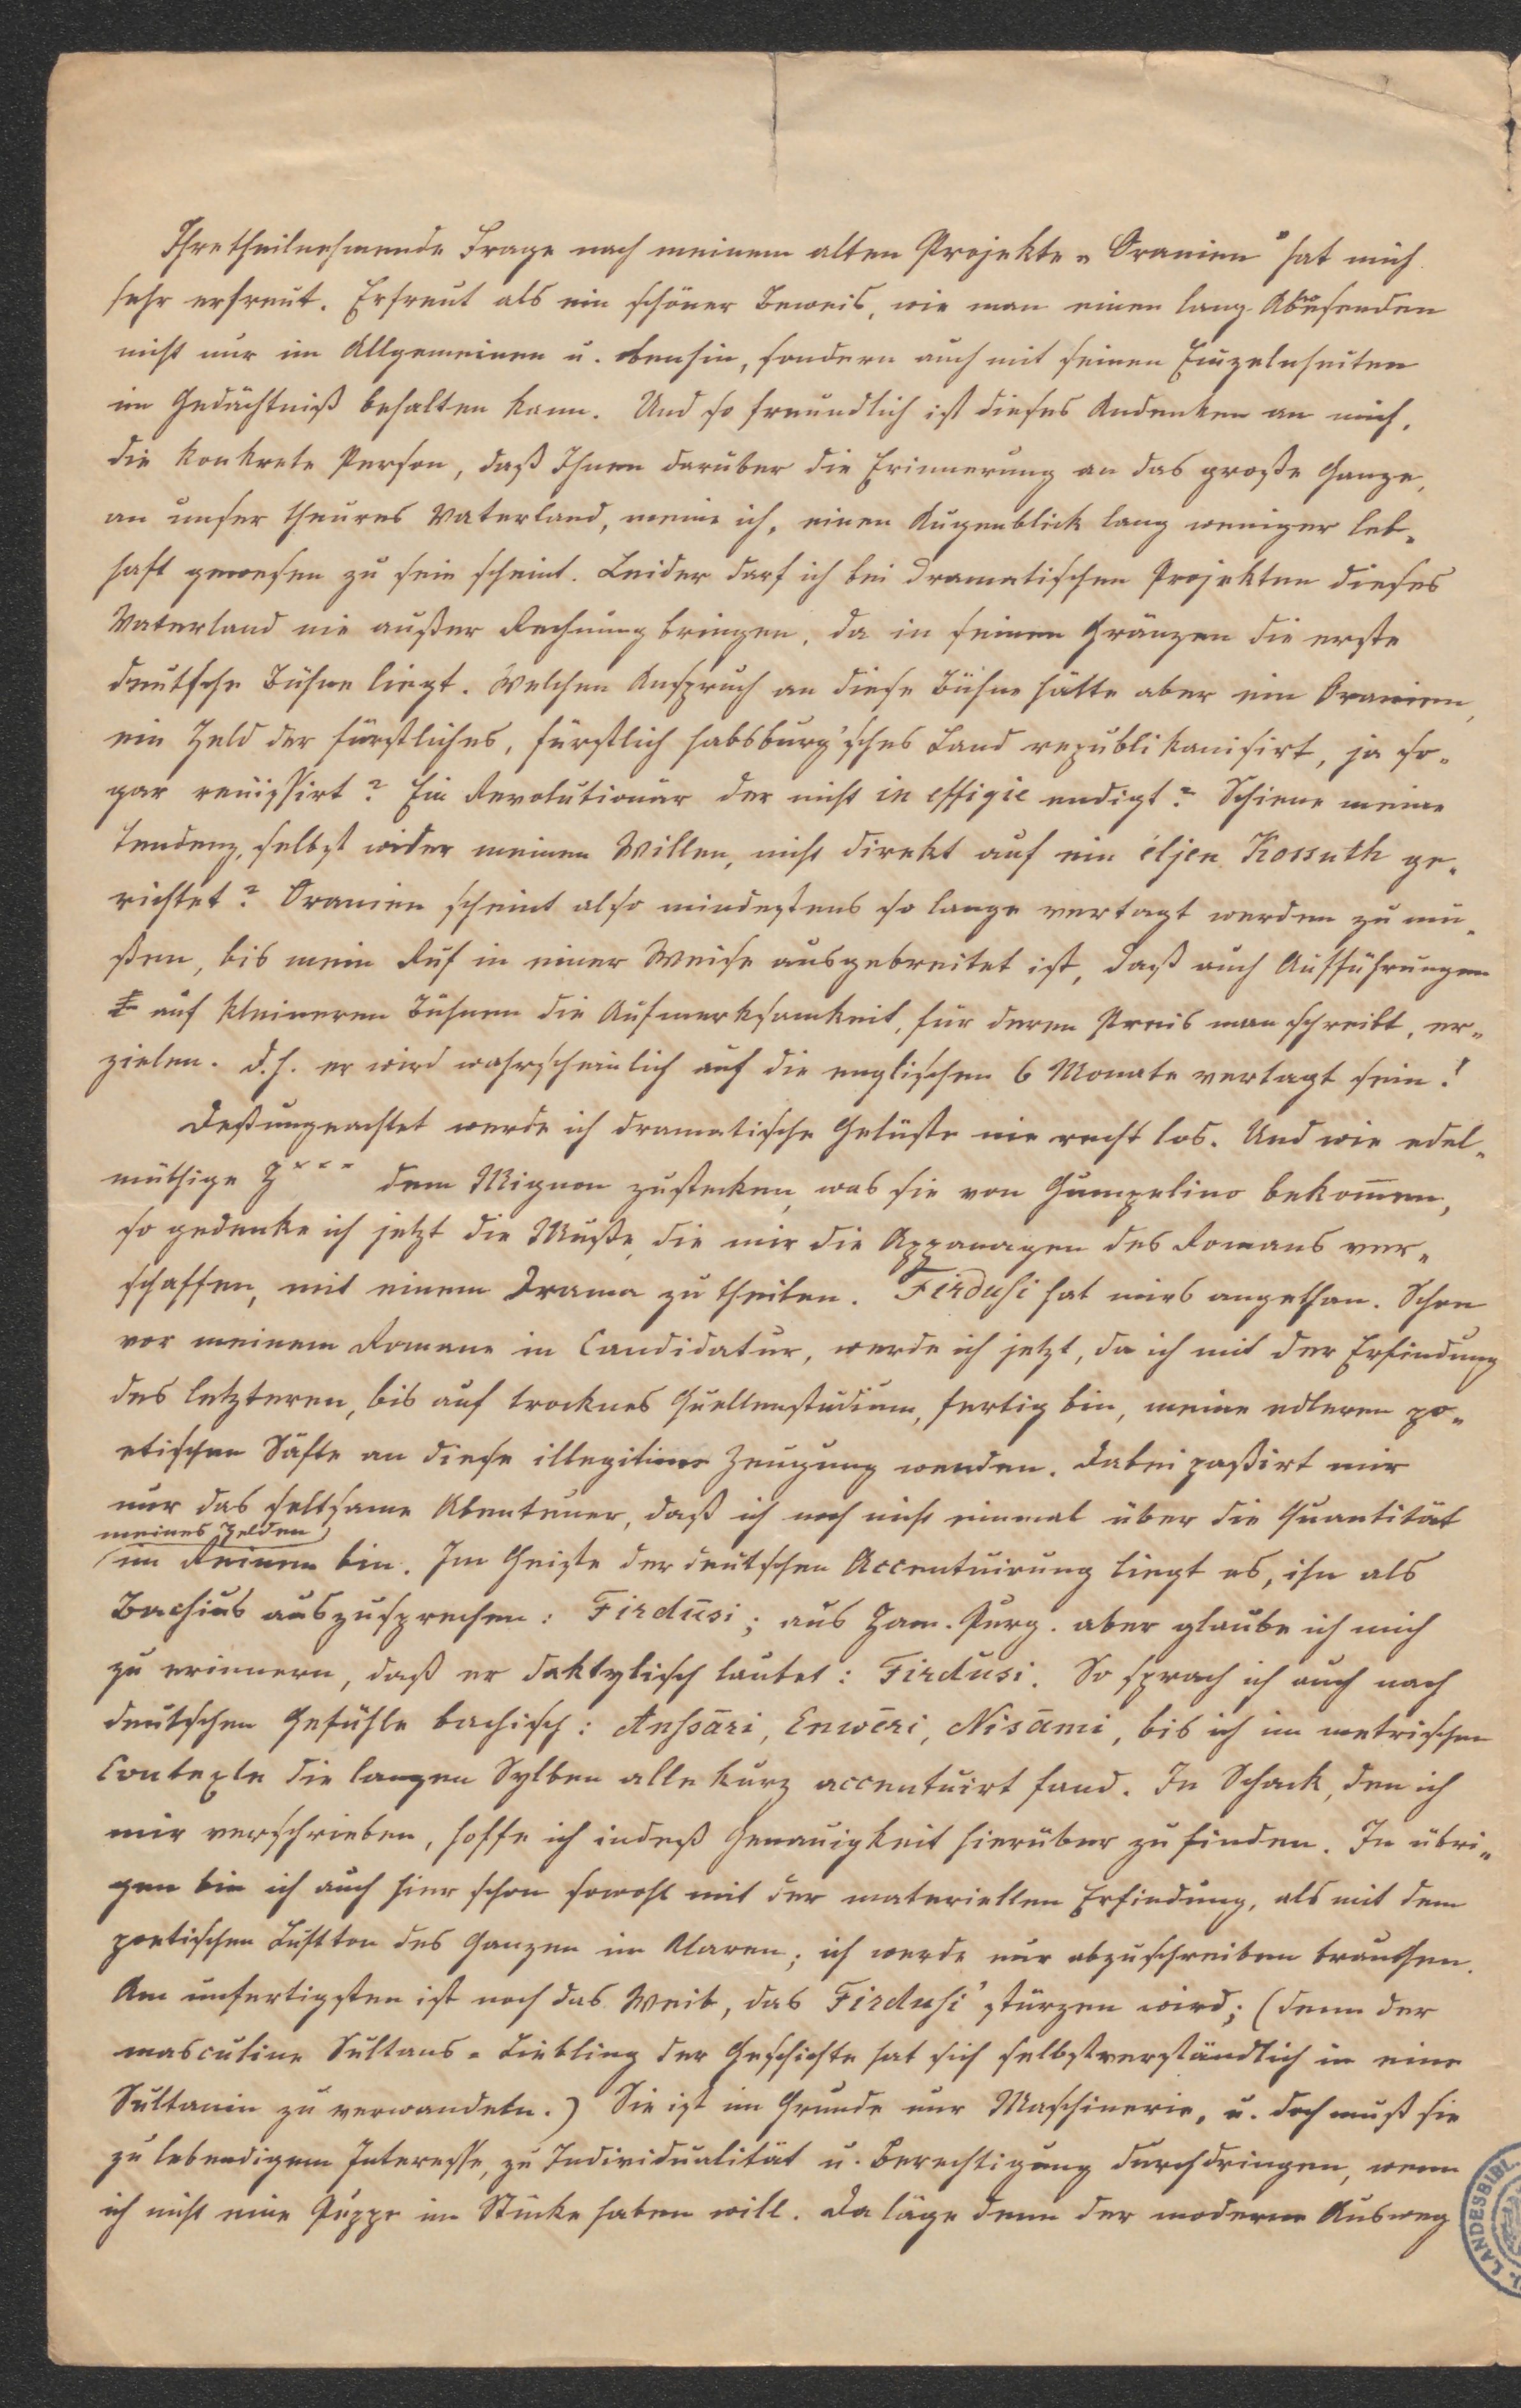 Ihre theilnehmende Frage nach meinem alten Projekte „Oranien" hat mich
sehr erfreut. Erfreut als ein schöner Beweis, wie man einen lang Abwesenden
nicht nur im Allgemeinen u. obenhin, sondern auch mit seinen Einzelnheiten
im Gedächtniß behalten kann. Und so freundlich ist dieses Andenken an mich,
die konkrete Person, daß Ihnen darüber die Erinnerung an das große Ganze,
an unser theures Vaterland, meine ich, einen Augenblick lang weniger leb-
haft gewesen zu sein scheint. Leider darf ich bei dramatischen Projekten dieses
Vaterland nie außer Rechnung bringen, da in seinen Gränzen die erste
deutsche Bühne liegt. Welchen Anspruch an diese Bühne hätte aber ein Oranien,
ein Held der fürstliches, fürstlich habsburg'sches Land republikanisirt, ja so-
gar reüissirt? Ein Revolutionär der nicht in effigie endigt? Schiene meine
Tendenz, selbst wider meinen Willen, nicht direkt auf ein éljen Kossuth ge-
richtet? Oranien scheint also mindestens so lange vertagt werden zu mü-
ßen, bis mein Ruf in einer Weise ausgebreitet ist, daß auch Aufführungen
auf kleineren Bühnen die Aufmerksamkeit, für deren Preis man schreibt, er-
zielen. d. h. er wird wahrscheinlich auf die englischen 6 Monate vertagt sein!
Deßungeachtet werde ich dramatische Gelüste nie recht los. Und wie edel-
müthige H*** dem Mignon zustecken, was sie von Gumpelino bekommen,
so gedenke ich jetzt die Muße, die mir die Appanagen des Romans ver-
schaffen, mit einem Drama zu theilen. Firdusi hat mirs angethan. Schon
vor meinem Romane in Candidatur, werde ich jetzt, da ich mit der Erfindung
des letzteren, bis auf trocknes Quellenstudium, fertig bin, meine edleren po-
etischen Säfte an diese illegitime Zeugung wenden. Dabei paßirt mir
nur das seltsame Abenteuer, daß ich noch nicht einmal über die Quantität
meines Helden
im Reinen bin. Im Geiste der deutschen Accentuirung liegt es, ihn als
Bachius auszusprechen: Firdūsi; aus Ham. Purg. aber glaube ich mich
zu erinnern, daß er daktylisch lautet: Firdusi. So sprach ich auch nach
deutschen Gefühle bachisch: Anhsāri, Enwēri, Nisāmi, bis ich im metrischen
Contexte die langen Sylben alle kurz accentuirt fand. In Schack, den ich
mir verschrieben, hoffe ich indeß Genauigkeit hierüber zu finden. In übri-
gen bin ich auch hier schon sowohl mit der materiellen Erfindung, als mit dem
poetischen Luftton des Ganzen im Klaren; ich werde nur abzuschreiben brauchen.
Am unfertigsten ist noch das Weib, das Firdusi' stürzen wird; (denn der
masculine Sultans-Liebling der Geschichte hat sich selbstverständlich in eine
Sultanin zu verwandeln.) Sie ist im Grunde nur Maschinerie, u. doch muß sie
zu lebendigem Interesse, zu Individualität u. Berechtigung durchdringen, wenn
ich nicht eine Puppe im Stücke haben will. Da läge denn der moderne Ausweg
LANDESBIBL.